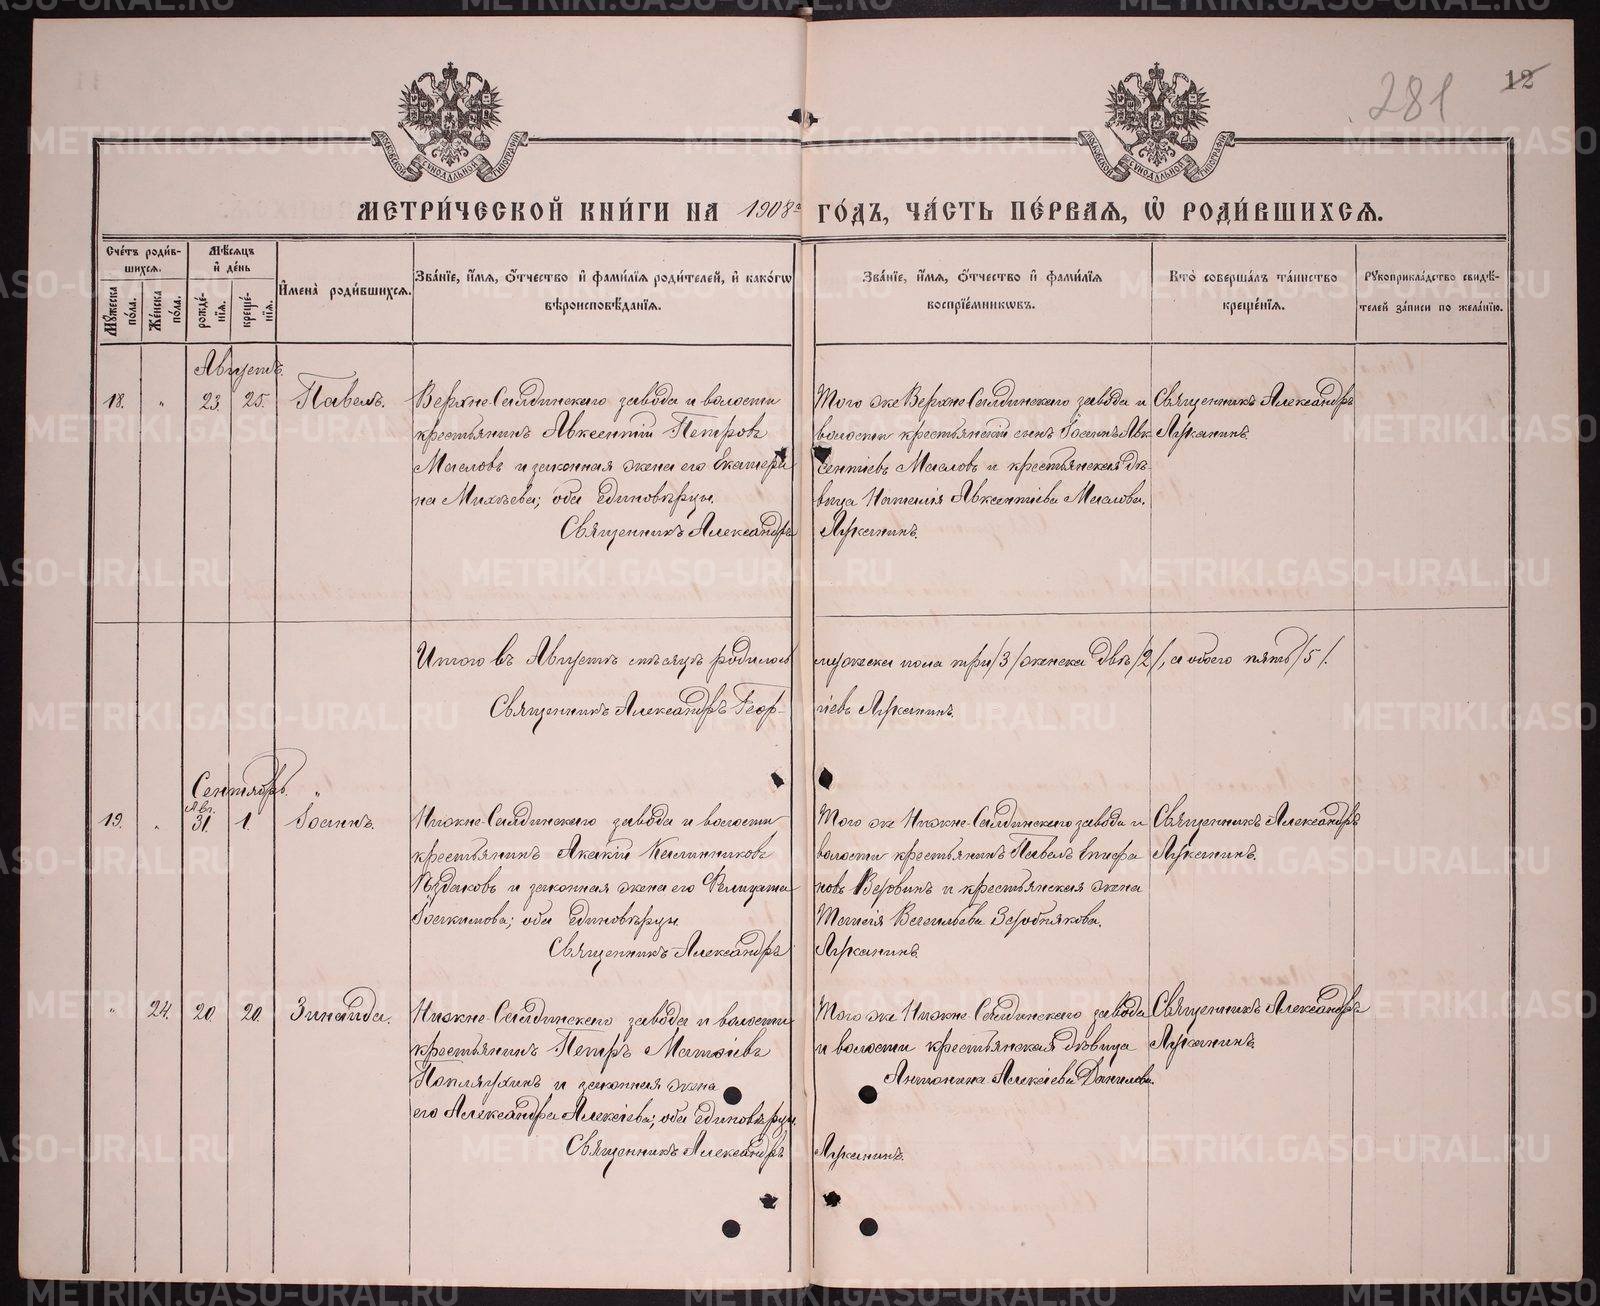 281
12
МЕТРИ́ЧЕСКОЙ КНИ́ГИ НА 1908й ГО́ДЪ, ЧА́СТЬ ПЕ́РВАЯ, Ѡ҆ РОДИ́ВШИХСѦ.
Сче́тъ роди́в-
шихсѧ.
Мꙋ́жеска по́ла.
Же́нска по́ла.
Мѣ́сѧцъ
и҆ де́нь
рожде́-
нїѧ.
креще́-
нїѧ.
И҆мена̀ роди́вшихсѧ.
Зва́нїе, и҆́мѧ, ѻ҆́тчество и҆ фами́лїѧ роди́телей, и҆ како́гѡ
вѣроисповѣ́данїѧ.
Зва́нїе, и҆́мѧ, ѻ҆́тчество и҆ фами́лїѧ
воспрїе́мникѡвъ.
Кто̀ соверша́лъ та́инство
креще́нїѧ.
Рꙋкоприкла́дство свидѣ́-
телей за́писи по жела́нїю.
Августъ.
18. „ 23. 25. Павелъ.
Верхне-Салдинскаго завода и волости
крестьянинъ Авксентій Петровъ
Масловъ и законная жена его Екатери
на Михѣева; оба единовѣрцы.
Священникъ Александръ
Того же Верхне-Салдинскаго завода и
волости крестьянскій сынъ Іосифъ Авк
сентіевъ Масловъ и крестьянская дѣ-
вица Наталія Авксентіева Маслова.
Луканинъ.
Священникъ Александръ
Луканинъ.
Итого въ Августѣ мѣсяцѣ родилось мужеска пола три /3/ женска двѣ /2/, а обоего пять /5/.
Священникъ Александръ Геор-
гіевъ Луканинъ.
Сентябрь.
Авг.
19. „ 31. 1. Іоаннъ.
Нижне-Салдинскаго завода и волости
крестьянинъ Акакій Калинниковъ
и законная жена его Фелицата
Іоакимова; оба единовѣрцы.
Священникъ Александръ
Того же Нижне-Салдинскаго завода и
волости крестьянинъ Павелъ Епифа
новъ и крестьянская жена
Таисія Васильева Зеробнякова.
Луканинъ.
Священникъ Александръ
Луканинъ.
„ 24. 20. 20. Зинаида.
Нижне-Салдинскаго завода и волости
крестьянинъ Петръ
Поплаухинъ и законная жена
его Александра Алексіева; оба единовѣрцы.
Священникъ Александръ
Того же Нижне-Салдинскаго завода
и волости крестьянская дѣвица
Антонина Алексіева Данилова.
Луканинъ.
Священникъ Александръ
Луканинъ.
METRIKI.GASO-URAL.RU